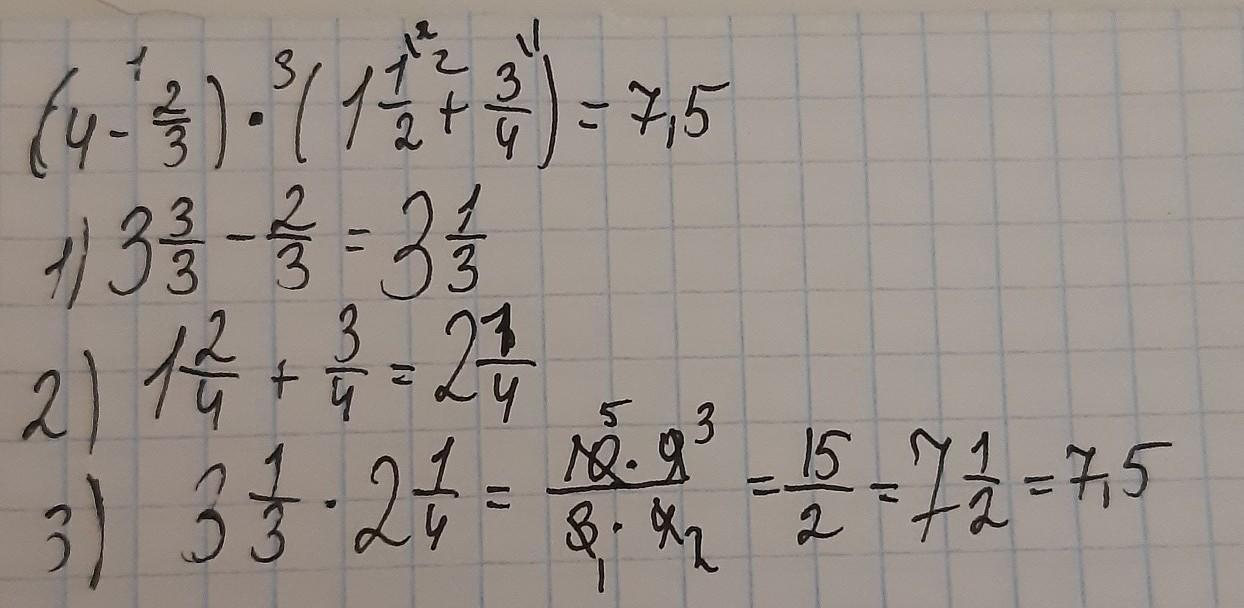 (4 - 2/3) · (1 1/2 + 3/4) = 7,5
1) 3 3/3 - 2/3 = 3 1/3
2) 1 2/4 + 3/4 = 2 1/4
3) 3 1/3 · 2 1/4 = 10 · 9 / 3 · 4 = 15/2 = 7 1/2 = 7,5